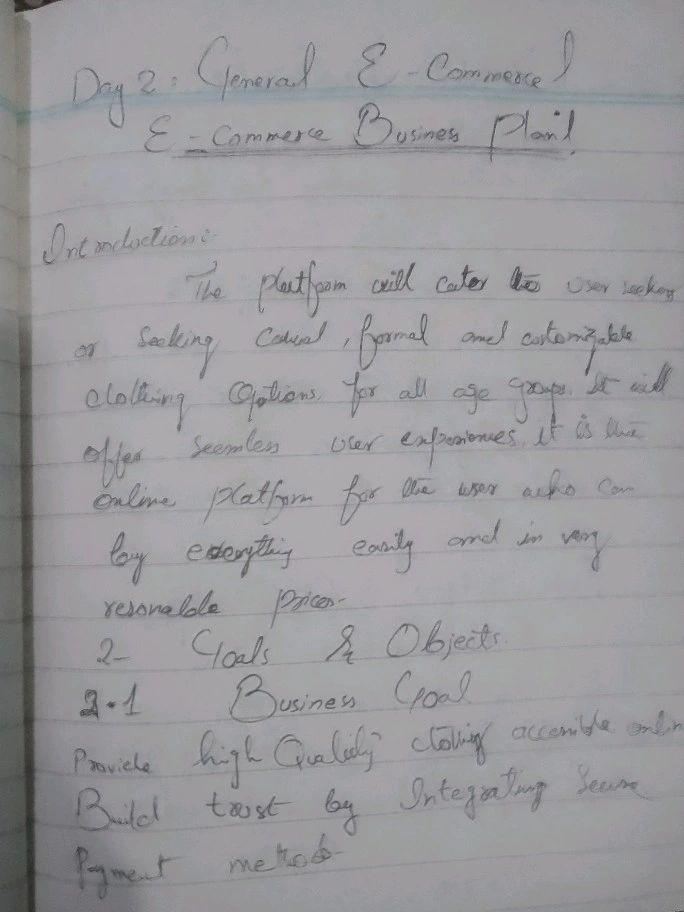 Day 2: General E-Commerce!
E-Commerce Business Plan!
Introduction:-
The platform will cater the user seeking
or seeking Casual, formal and customizable
clothing Options. for all age groups. It will
offer seemless user experiences. it is the
online platform for the user who can
buy everything easily and in very
resonable prices-
2- Goals & Objects.
2.1 Business Goal
Provide high Quality clothing accessible online
Build trust by Integrating Secure
Payment methods-